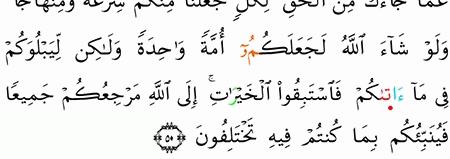 عَمَّا جَآءَكَ مِنَ ٱلْحَقِّ لِكُلٍّ جَعَلْنَا مِنكُمْ شِرْعَةً وَمِنْهَاجًا
وَلَوْ شَآءَ ٱللَّهُ لَجَعَلَكُمُۥٓ أُمَّةً وَٰحِدَةً وَلَٰكِن لِّيَبْلُوَكُمْ
فِى مَآ ءَاتَىٰكُمْ فَٱسْتَبِقُوا۟ ٱلْخَيْرَٰتِ ۚ إِلَى ٱللَّهِ مَرْجِعُكُمْ جَمِيعًا
فَيُنَبِّئُكُم بِمَا كُنتُمْ فِيهِ تَخْتَلِفُونَ ٥٠